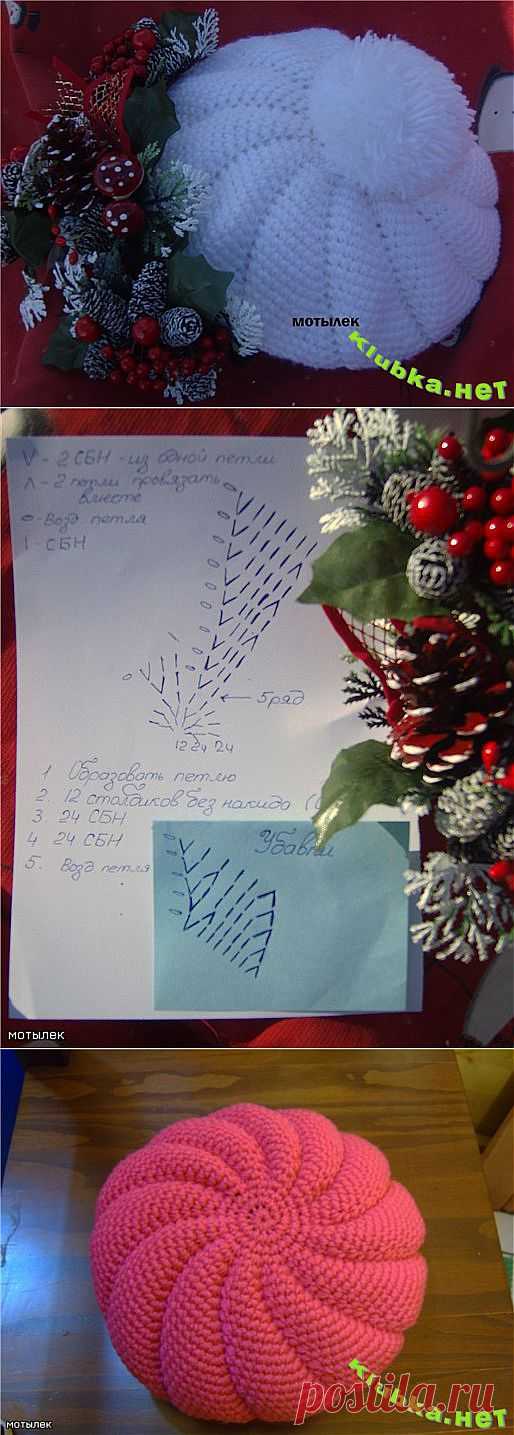 мотылек
klubка.нет
V - 2 СБН - из одной петли
Λ - 2 петли провязать
вместе
0 - Возд петля
I - СБН
5 ряд
12 24 24
1 Образовать петлю
2. 12 столбиков без накида (
3. 24 СБН
4 24 СБН
5. Возд петля
Убавки
мотылек
klubка.нет
postila.ru
мотылек